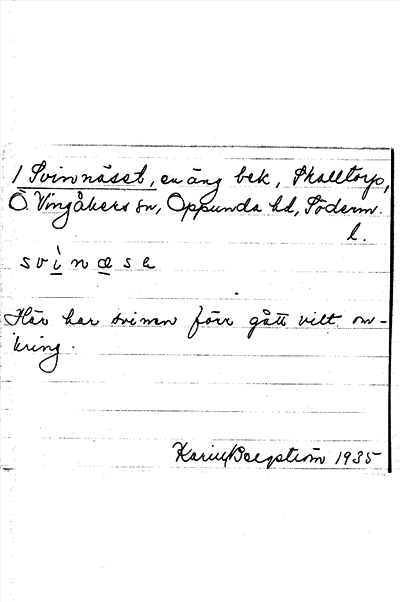 / Svinnäset, en äng bek, Skalltorp,
Ö. Vingåkers sn, Oppunda hd, Söderm.
l.
svìnæse
Här har svinen förr gått vilt om-
kring.
Karin Bergström 1935